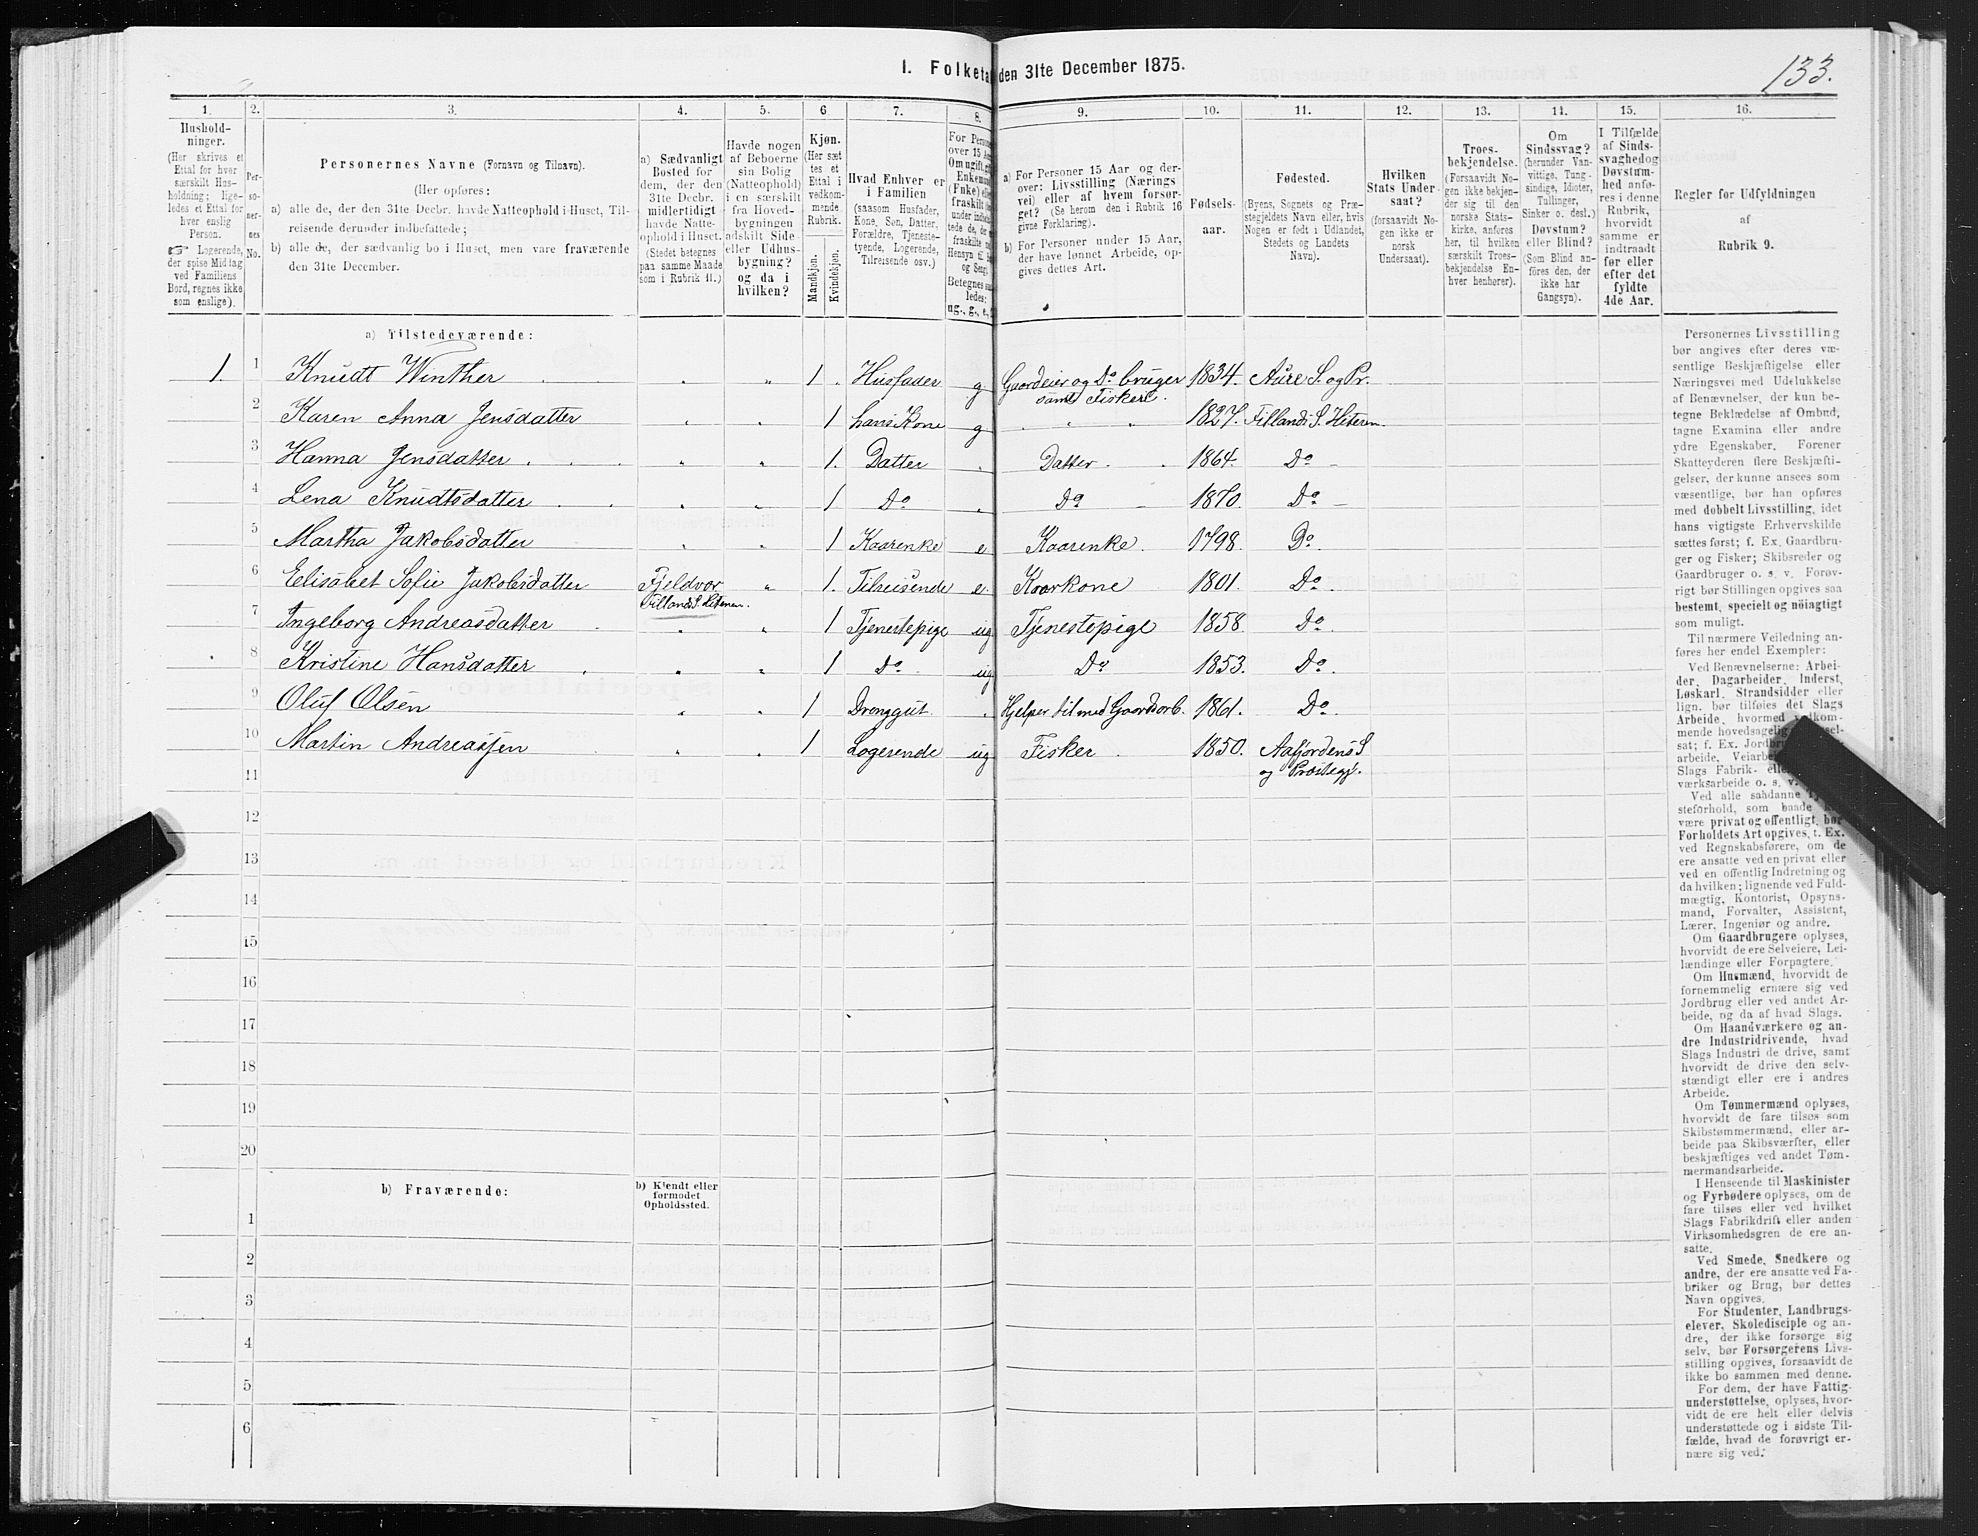 I. Folketa den 31te December 1875.
133.
1. 2. 3. 4. 5. 6 7. 8. 9. 10. 11. 12. 13. 14. 15. 16.
Hushold-
ninger.
(Her skrives et
Ettal for hver
særskilt Hus-
holdning; lige-
ledes et Ettal for
hver enslig
Person.
Logerende,
der spise Middag
ved Familiens
Bord, regnes ikke
som enslige).
Per-
so-
ner-
nes
No.
Personernes Navne (Fornavn og Tilnavn).
(Her opføres:
a) alle de, der den 31te Decbr. havde Natteophold i Huset, Til-
reisende derunder indbefattede;
b) alle de, der sædvanlig bo i Huset, men vare fraværende
den 31te December.
a) Sædvanligt
Bosted for
dem, der den
31te Decbr.
midlertidigt
havde Natte-
ophold i Huset.
(Stedet betegnes
paa samme Maade
som i Rubrik 11.)
Havde nogen
af Beboerne
sin Bolig
(Natteophold)
i en særskilt
fra Hoved-
bygningen
adskilt Side
eller Udhus-
bygning?
og da i
hvilken?
Kjøn.
(Her sæt
tes et
Ettal i
vedkom-
mende
Rubrik.
Mandkjøn.
Kvindekjøn.
Hvad Enhver er
i Familien
(saasom Husfader,
Kone, Søn, Datter,
Forældre, Tjeneste-
tyende, Logerende,
Tilreisende osv.)
For Perso
over 15 A
Om ugift, gif
Enkeman
(Fnke) ell
fraskilt
under indbe
tede de,
fraskilte
Hensyn til
og Seng
Betegnes s
ledes:
ug., g., e.,
a) For Personer 15 Aar og der-
over: Livsstilling (Nærings
vei) eller af hvem forsør-
get? (Se herom den i Rubrik 16
givne Forklaring).
b) For Personer under 15 Aar,
der have lønnet Arbeide, op-
gives dettes Art.
Fødsels-
aar.
Fødested.
(Byens, Sognets og Præ-
stegjeldets Navn eller, hvis
Nogen er født i Udlandet,
Stedets og Landets
Navn).
Hvilken
Stats Under-
saat?
(forsaavidt No-
gen ikke er
norsk
Undersaat).
Troes-
bekjendelse.
(Forsaavidt No-
gen ikke bekjen-
der sig til den
norske Stats-
kirke, anføres
her, til hvilken
særskilt Troes-
bekjendelse En-
hver henhører).
Om
Sindssvag?
(herunder Van-
vittige, Tung-
sindige, Idioter,
Tullinger,
Sinker o. desl.)
Døvstum?
eller Blind?
(Som Blind an-
føres den, der
ikke har
Gangsyn).
I Tilfælde
af Sinds-
svaghed og
Døvstum-
hed anfø-
res i denne
Rubrik,
hvorvidt
samme er
indtraadt
før eller
efter det
fyldte
4de Aar.
Regler for Udfyldningen
af
Rubrik 9.
a) Tilstedeværende:
1. 1 Knudt Winther " 1 Husfader g Gaardeier og Do bruger 1834. Aure S. og Pr.
samt Fisker.
2 Karen Anna Jensdatter " " 1 hans Kone g " " 1827. Fillands S. Hiteren
3 Hanna Jensdatter " " 1. Datter Datter 1864. Do
4 Lena Knudtsdatter " " 1 Do Do 1870. Do
5 Martha Jakobsdatter " " 1 Kaarenke e Kaarenke. 1798. Do
6 Elisabet Sofie Jakobsdatter Fjeldvor " 1. Tilreisende e. Kaarkone 1801. Do
Fillands S. Hiteren.
7 Ingeborg Andreasdatter " " 1 Tjenestepige ug Tjenestepige 1858 Do
8 Kristine Hansdatter " " 1 Do ug Do 1853. Do
9 Oluf Olsen " " 1 Drenggut. Hjelper til med Gaardsarb. 1861. Do
10 Martin Andreassen " " 1 Logerende ug Fisker 1850. Aafjordens S
og Præstegj.
11
12
13
14
15
16
17
18
19
20
b) Fraværende:
b) Kjendt eller
formodet
Opholdssted.
1
2
3
4
5
6
Personernes Livsstilling
bør angives efter deres væ-
sentlige Beskjæftigelse eller
Næringsvei med Udelukkelse
af Benævnelser, der kun be-
tegne Beklædelse af Ombud,
tagne Examina eller andre
ydre Egenskaber. Forener
Skatteyderen flere Beskjæfti-
gelser, der kunne ansees som
væsentlige, bør han opføres
med dobbelt Livsstilling, idet
hans vigtigste Erhvervskilde
sættes først; f. Ex. Gaardbru-
ger og Fisker; Skibsreder og
Gaardbruger o. s. v. Forøv-
rigt bør Stillingen opgives saa
bestemt, specielt og nöiagtigt
som muligt.
Til nærmere Veiledning an-
føres her endel Exempler:
Ved Benævnelserne: Arbei-
der, Dagarbeider, Inderst,
Løskarl, Strandsidder eller
lign. bør tilføies det Slags
Arbeide, hvormed vedkom-
mende hovedsagelig
sat; f. Ex. Jordbr
arbeide, Veiarbe
Slags Fabrik- elle
værksarbeide o. s. v.
Ved alle saadanne
steforhold, som baade
være privat og offentligt, bør
Forholdets Art opgives, t. Ex.
ved Regnskabsførere, om de
ere ansatte ved en privat eller
ved en offentlig Indretning og
da hvilken; lignende ved Fuld-
mægtig, Kontorist, Opsyns-
mand, Forvalter, Assistent,
Lærer, Ingeniør og andre.
Om Gaardbrugere oplyses,
hvorvidt de ere Selveiere, Lei-
lændinge eller Forpagtere.
Om Husmænd, hvorvidt de
fornemmelig ernære sig ved
Jordbrug eller ved andet Ar-
beide, og da af hvad Slags.
Om Haandværkere og an-
dre Industridrivende, hvad
Slags Industri de drive, samt
hvorvidt de drive den selv-
stændigt eller ere i andres
Arbeide.
Om Tømmermænd oplyses,
hvorvidt de fare tilsøs som
Skibstømmermænd, eller ar-
beide paa Skibsværfter, eller
beskjæftiges ved andet Tøm-
mermandsarbeide.
I Henseende til Maskinister
og Fyrbødere oplyses, om de
fare tilsøs eller ved hvilket
Slags Fabrikdrift eller anden
Virksomhedsgren de ere an-
satte.
Ved Smede, Snedkere og
andre, der ere ansatte ved Fa-
briker og Brug, bør dettes
Navn opgives.
For Studenter, Landbrugs-
elever, Skoledisciple og an-
dre, der ikke forsørge sig
selv, bør Forsørgerens Livs-
stilling opgives, forsaavidt de
ikke bo sammen med denne.
For dem, der have Fattig-
understøttelse, oplyses, hvor-
vidt de ere helt eller delvis
understøttede og i sidste Til-
fælde, hvad de forøvrigt er-
nære sig ved.